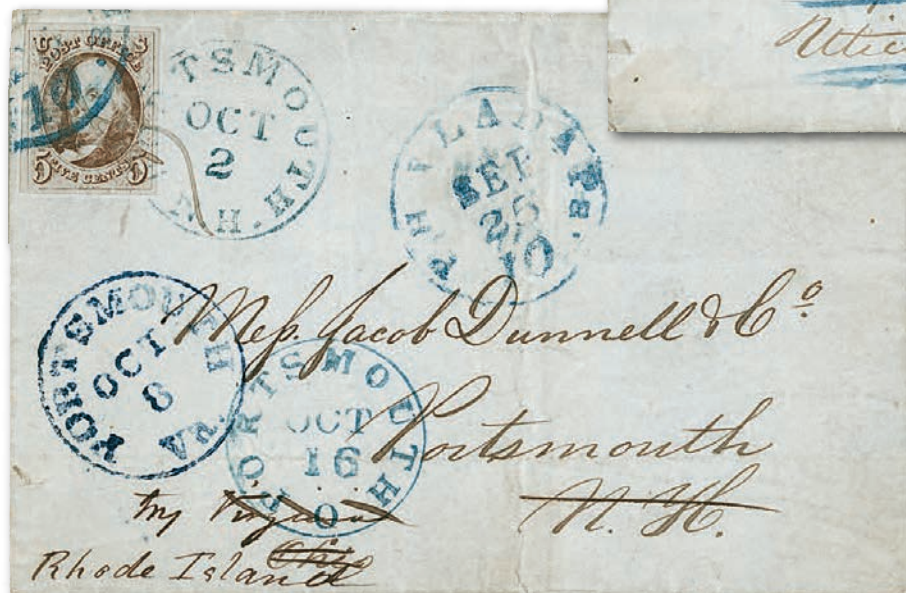 POST OFFICE
FIVE CENTS
10
PORTSMOUTH N.H.
OCT
2
PHILADA Pa.
SEP
25
10
Utic
Mess. Jacob Dunnell & Co.
Portsmouth
N. H.
PORTSMOUTH VA
OCT
8
PORTSMOUTH O
OCT
16
try Virginia
Ohio
Rhode Island